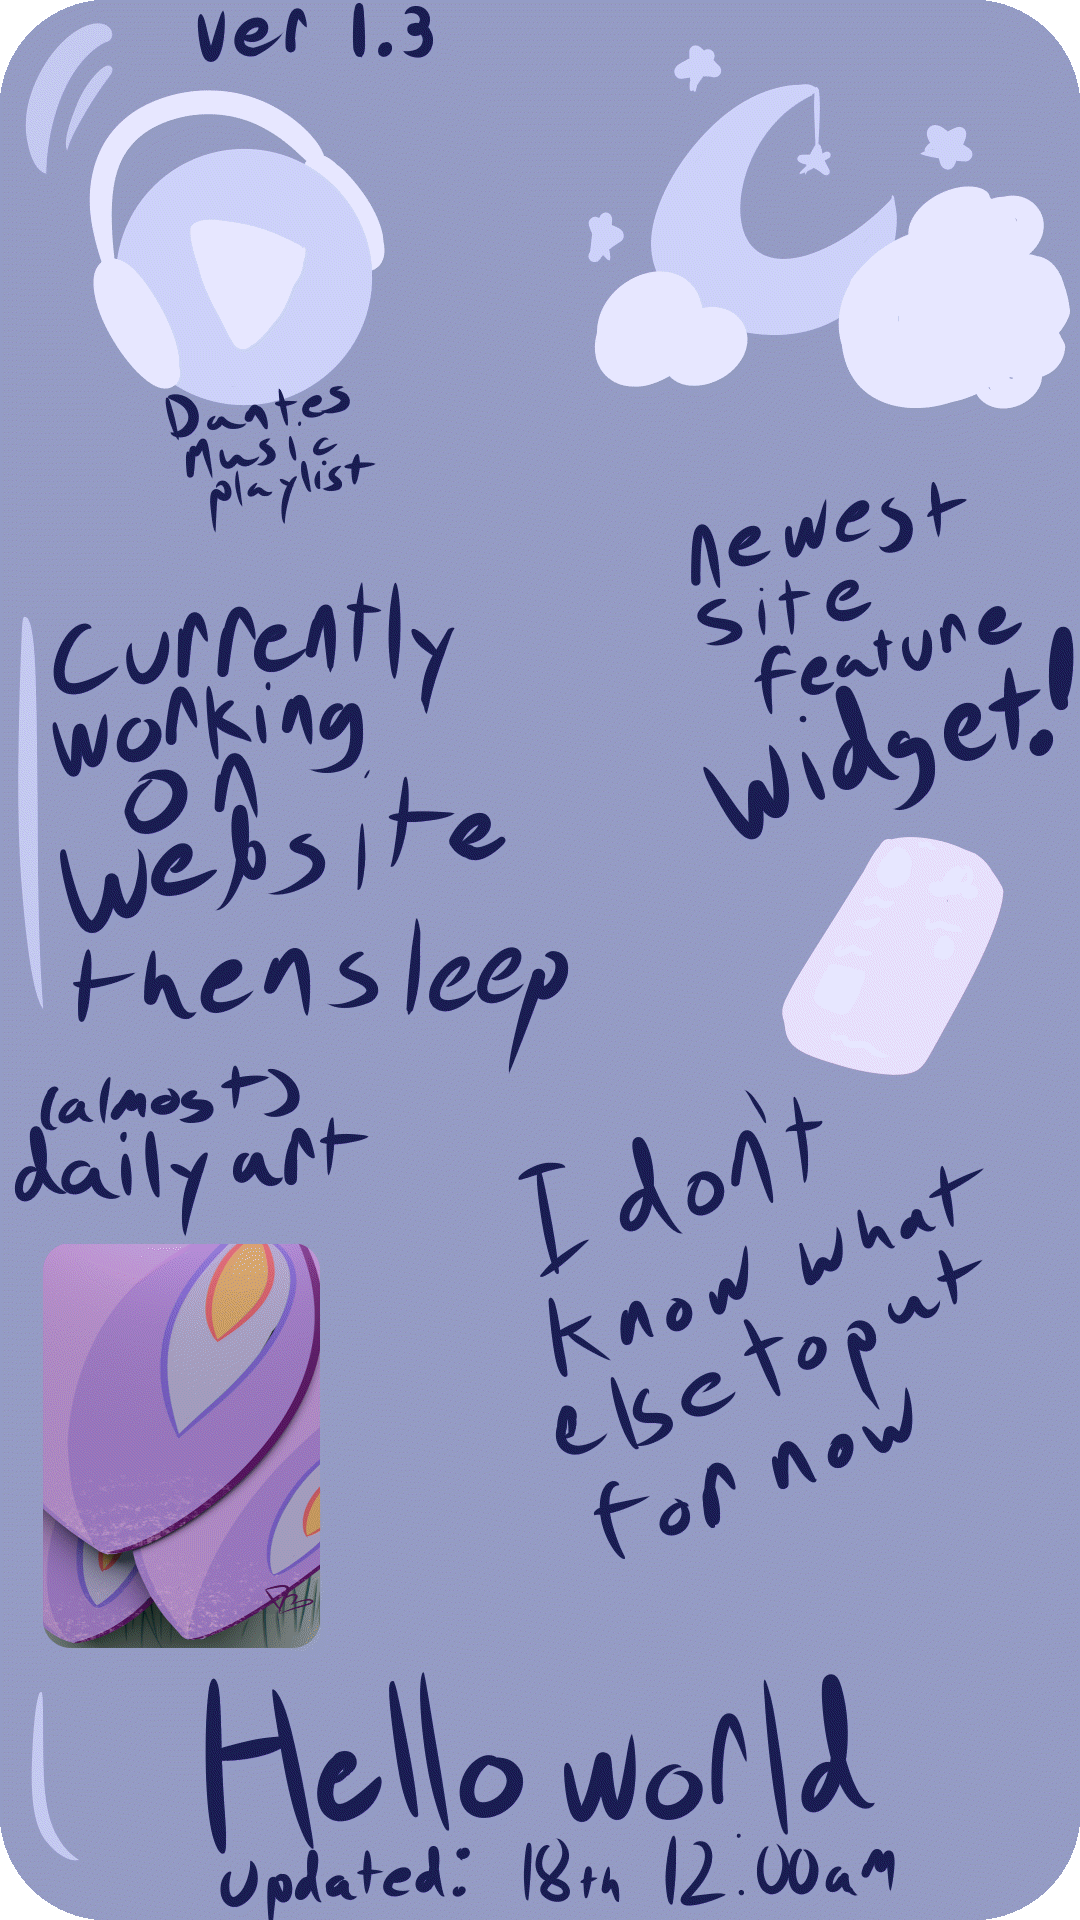 ver 1.3
Dantes
Music
playlist
newest
site
feature
widget!
Currently
working
on
website
then sleep
(almost)
daily art
I don't
know what
else to put
for now
Hello world
updated: 18th 12:00am